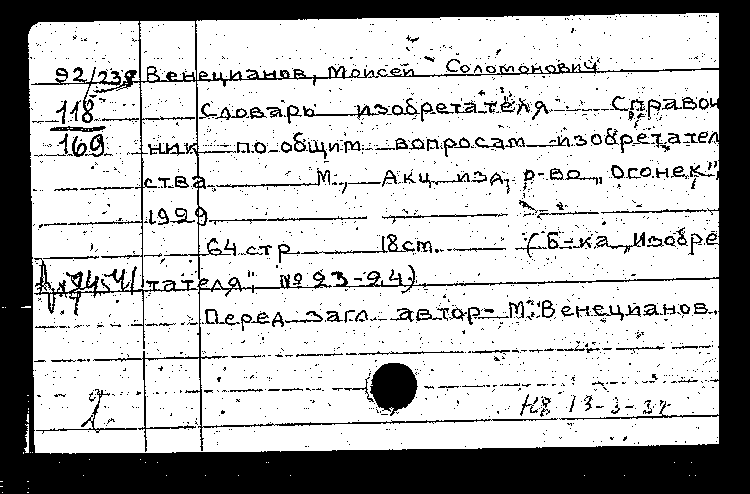 92/238 Венецианов, Моисей Соломонович
118 Словарь изобретателя Справоч
169 ник по общим вопросам изобретател
ства М., Акц. изд. о-во „Огонек",
1929
64 стр 18 cm. (Б-ка „Изобре
тателя", № 23-24)
Перед загл. автор- М. Венецианов.
2